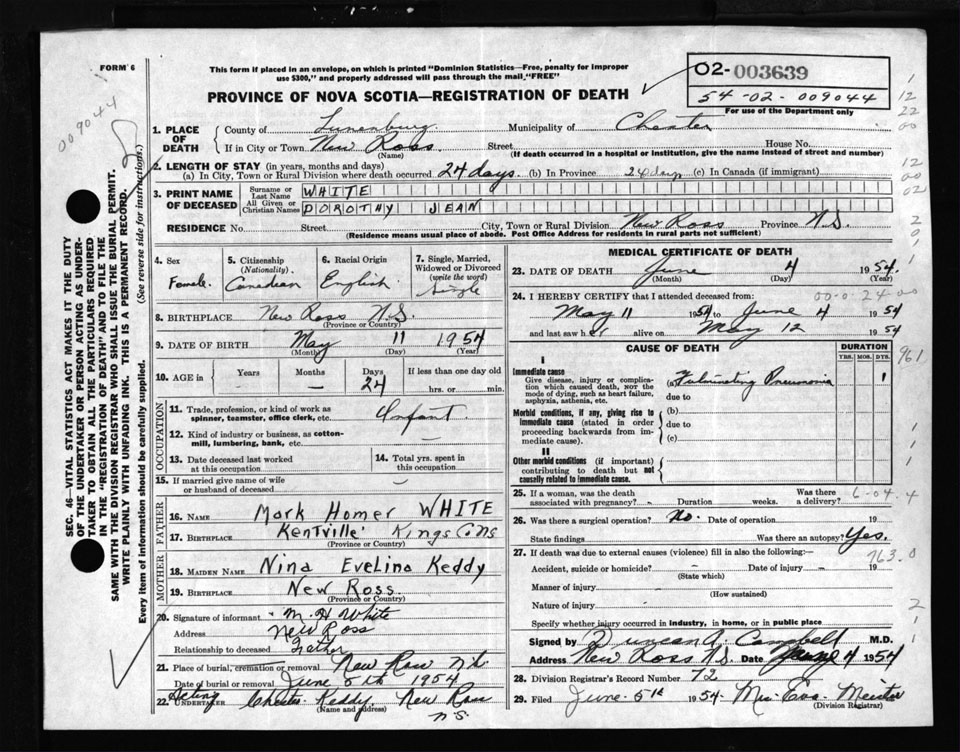 FORM 6
This form if placed in an envelope, on which is printed "Dominion Statistics—Free, penalty for improper
use $300," and properly addressed will pass through the mail "FREE"
PROVINCE OF NOVA SCOTIA—REGISTRATION OF DEATH
02-003639
54-02-009044
For use of the Department only
009044
SEC. 46—VITAL STATISTICS ACT MAKES IT THE DUTY
OF THE UNDERTAKER OR PERSON ACTING AS UNDER-
TAKER TO OBTAIN ALL THE PARTICULARS REQUIRED
IN THE "REGISTRATION OF DEATH" AND TO FILE THE
SAME WITH THE DIVISION REGISTRAR WHO SHALL ISSUE THE BURIAL PERMIT.
WRITE PLAINLY WITH UNFADING INK. THIS IS A PERMANENT RECORD.
Every item of information should be carefully supplied. (See reverse side for instructions.)
1. PLACE OF DEATH
County of Lunenburg Municipality of Chester
If in City or Town New Ross Street House No.
(Name) (If death occurred in a hospital or institution, give the name instead of street and number)
2. LENGTH OF STAY (in years, months and days)
(a) In City, Town or Rural Division where death occurred 24 days (b) In Province 24 days (c) In Canada (if immigrant)
3. PRINT NAME OF DECEASED
Surname or Last Name WHITE
All Given or Christian Names DOROTHY JEAN
RESIDENCE No. Street City, Town or Rural Division New Ross Province N.S.
(Residence means usual place of abode. Post Office Address for residents in rural parts not sufficient)
4. Sex Female
5. Citizenship (Nationality). Canadian
6. Racial Origin English
7. Single, Married, Widowed or Divorced (write the word) Single
8. BIRTHPLACE New Ross N.S.
(Province or Country)
9. DATE OF BIRTH May 11 1954
(Month) (Day) (Year)
10. AGE in Years – Months – Days 24 If less than one day old hrs. or min.
OCCUPATION
11. Trade, profession, or kind of work as spinner, teamster, office clerk, etc. Infant
12. Kind of industry or business, as cotton-mill, lumbering, bank, etc. –
13. Date deceased last worked at this occupation
14. Total yrs. spent in this occupation
15. If married give name of wife or husband of deceased –
FATHER
16. NAME Mark Homer WHITE
17. BIRTHPLACE Kentville Kings Co NS
(Province or Country)
MOTHER
18. MAIDEN NAME Nina Evelina Keddy
19. BIRTHPLACE New Ross.
(Province or Country)
20. Signature of informant M. H White
Address New Ross
Relationship to deceased Father
21. Place of burial, cremation or removal New Ross N.S.
Date of burial or removal June 5th 1954
22. Acting UNDERTAKER Chester Keddy, New Ross
(Name and address) N.S.
MEDICAL CERTIFICATE OF DEATH
23. DATE OF DEATH June 4 1954.
(Month) (Day) (Year)
24. I HEREBY CERTIFY that I attended deceased from: 00-0-24-00
May 11 1954 to June 4 1954
and last saw her alive on May 12 1954
CAUSE OF DEATH DURATION
YRS. MOS. DYS.
I
Immediate cause
Give disease, injury or complication which caused death, NOT the mode of dying, such as heart failure, asphyxia, asthenia, etc.
(a) Fulminating Pneumonia 1
due to
Morbid conditions, if any, giving rise to immediate cause (stated in order proceeding backwards from immediate cause).
(b)
due to
(c)
II
Other morbid conditions (if important) contributing to death but not causally related to immediate cause.
25. If a woman, was the death associated with pregnancy? - Duration weeks. Was there a delivery?
26. Was there a surgical operation? No. Date of operation 19
State findings Was there an autopsy? Yes.
27. If death was due to external causes (violence) fill in also the following:—
Accident, suicide or homicide? Date of injury 19
(State which)
Manner of injury
(How sustained)
Nature of injury
Specify whether injury occurred in industry, in home, or in public place
Signed by Duncan A. Campbell M.D.
Address New Ross N.S. Date June 4 1954
28. Division Registrar's Record Number 72
29. Filed June 5th 1954 Mrs Eva Meister
(Division Registrar)
961
763.0